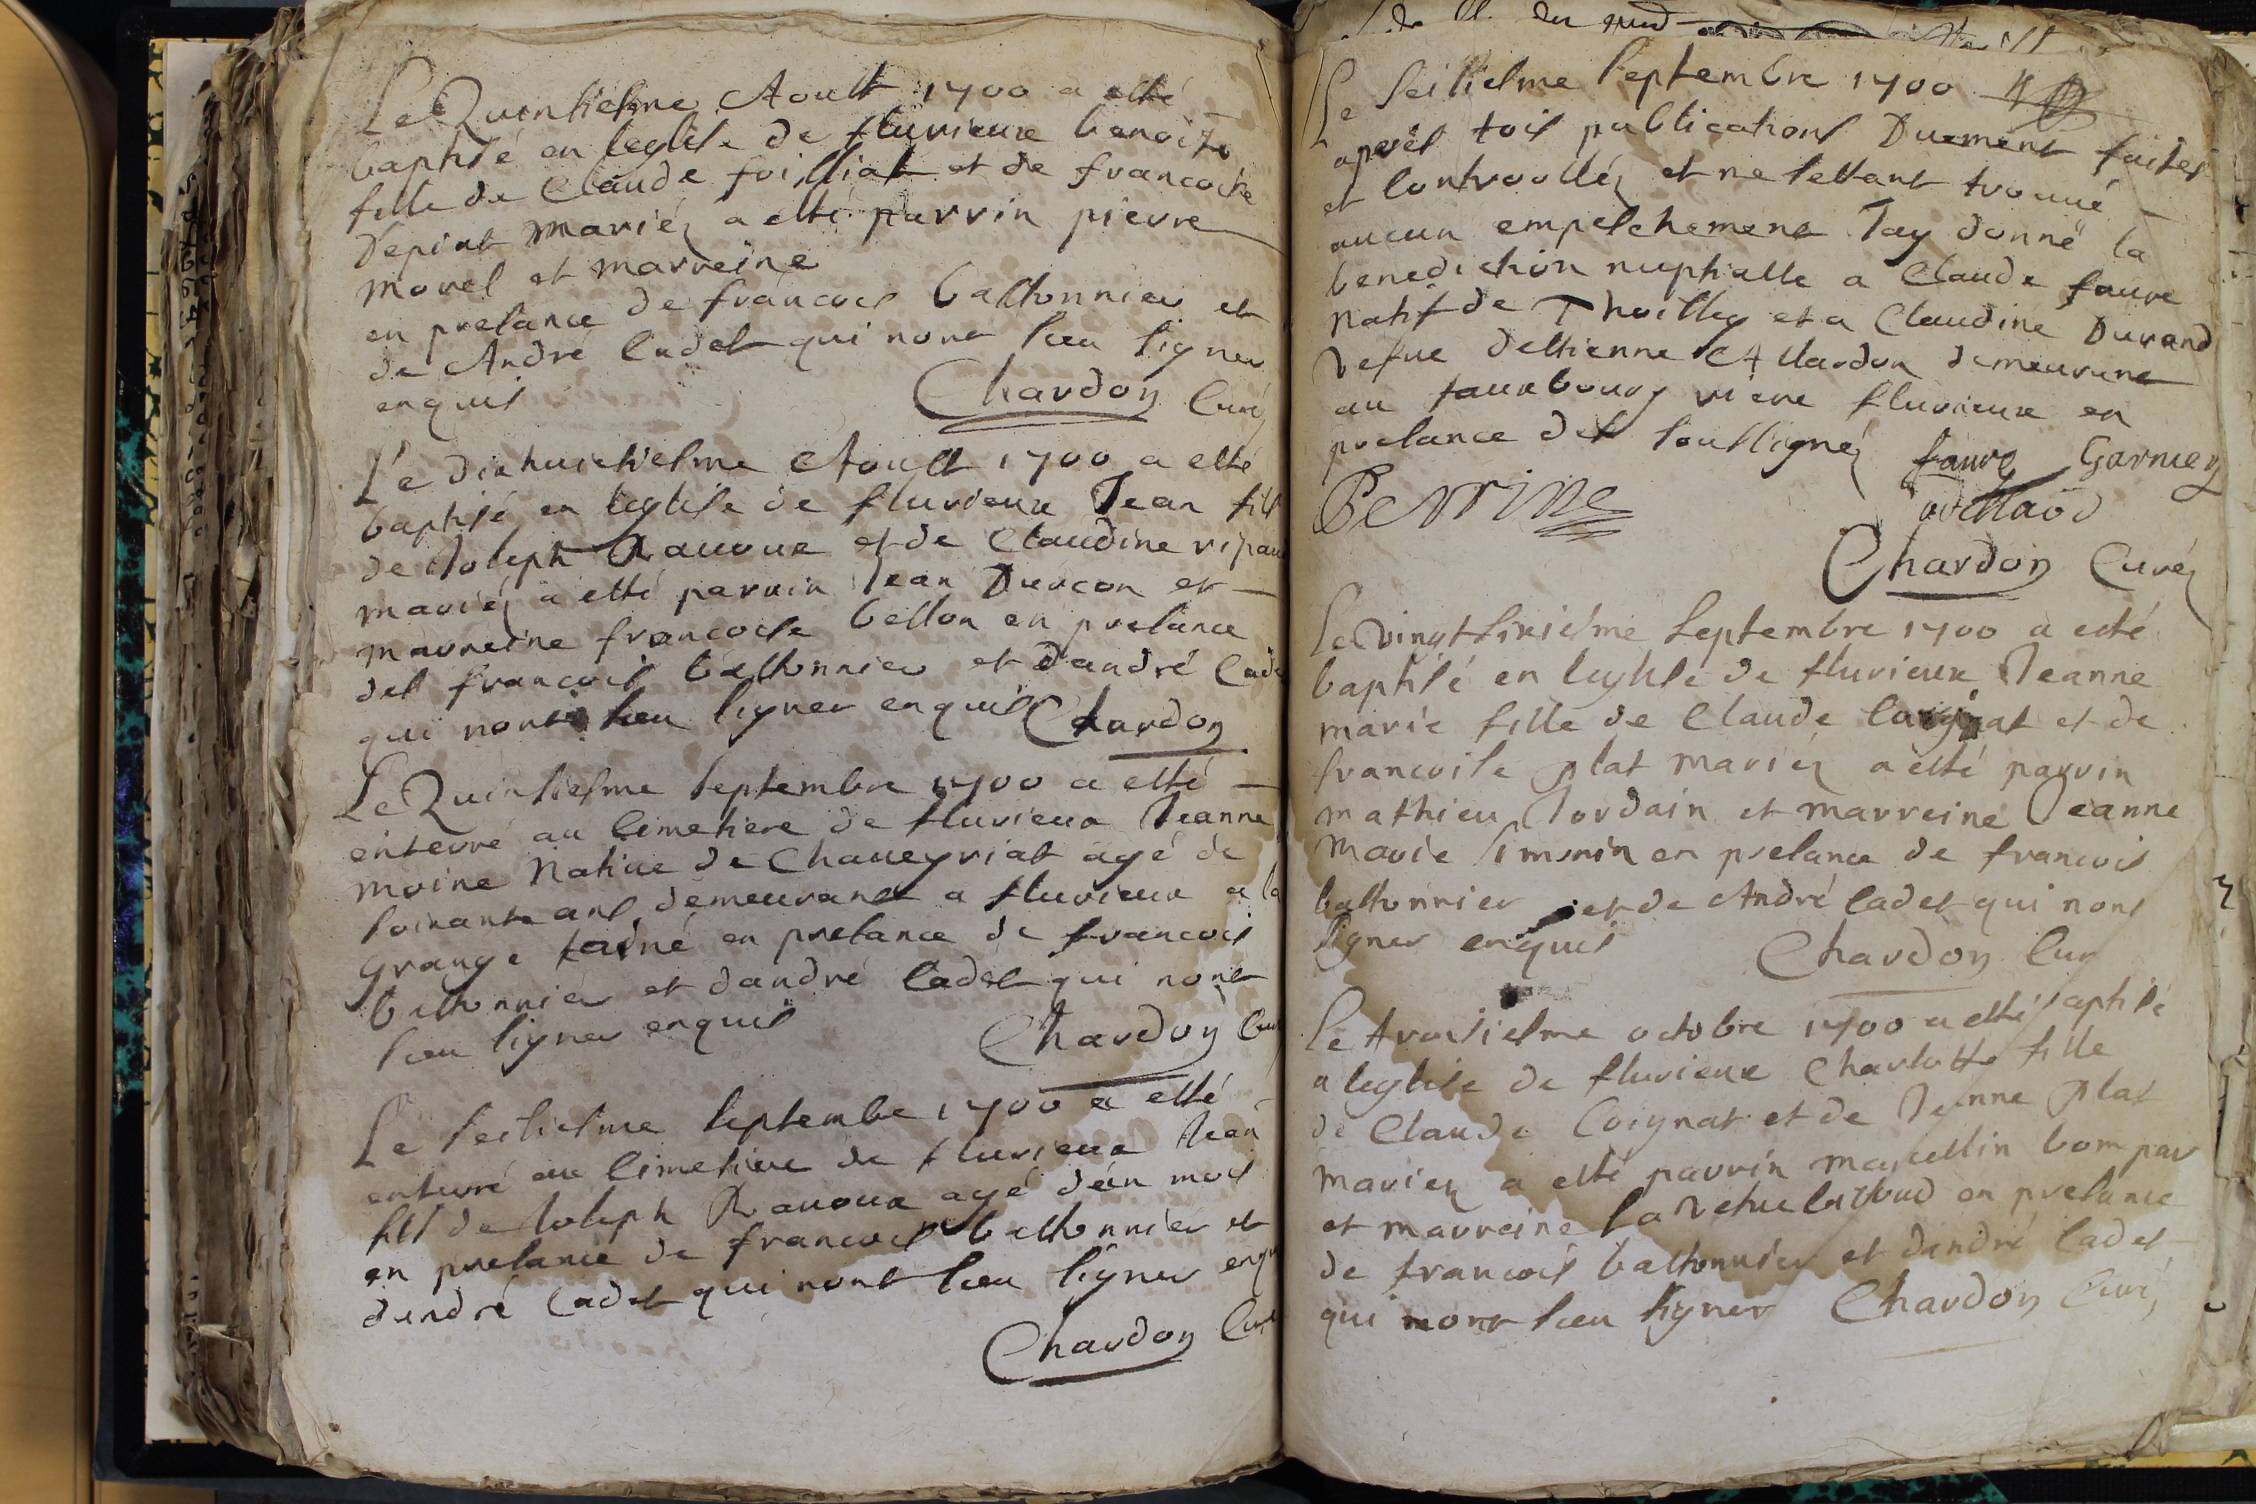 Le Quinsiesme Aoust 1700 a esté
baptisé en leglise de fluvieux benoite
fille de Claude foilliat et de francoise
Depint mariéz a esté parrin pierre
morel et marreine
en presance de francois bastonnier et
de André Cadet qui nont sceu signer
enquis Chardon Curé
Le dixhuictiesme Aoust 1700 a esté
baptisé en leglise de fluvieux Jean fils
de Joseph Ravoux et de Claudine
mariéz a esté parrin Jean Durcon et
marreine francoise bellon en presance
des francois bastonnier et dandré
qui nont sceu signer enquis Chardon
Le Quinsiesme septembre 1700 a esté
enterré au Cimetiere de fluvieux Jeanne
moine Native de Chaveyriat agé de
soixante ans demeurant a fluvieux a la
grange en presance de francois
bastonnier et dandré Cadet qui nont
sceu signer enquis Chardon
Le seisiesme septembre 1700 a esté
enterré au Cimetiere de fluvieux Jean
fils de Joseph Ravoux agé dun mois
en presance de francois bastonnier et
dandré Cadet qui nont sceu signer
Chardon
Le seisiesme septembre 1700
apres tois publications Duement faites
et Controolléz et ne sestant trouvé
aucun empeschement Jay donné la
benediction nuptialle a Claude faure
natif de Thoissey et a Claudine Durand
vefve destienne Allardon demeurant
au fauxbourg riere fluvieux en
presance des soussignéz faure Garnier
Perrine
Chardon Curéz
Le vingtsixiesme septembre 1700 a esté
baptisé en leglise de fluvieux Jeanne
marie fille de Claude Coignat et de
francoise plat mariéz a esté parrin
mathieu Jordain et marreine Jeanne
Marie Simonin en presance de francois
bastonnier et de André Cadet qui nont
signer enquis Chardon Cur
Le troisiesme octobre 1700 a esté baptisé
a leglise de fluvieux Charlotte fille
de Claude Coignat et de Jeanne plat
mariez a esté parrin marcellin bompar
et marreine La vefve en presance
de francois bastonnier et dandré Cadet
qui nont sceu signer Chardon Curé